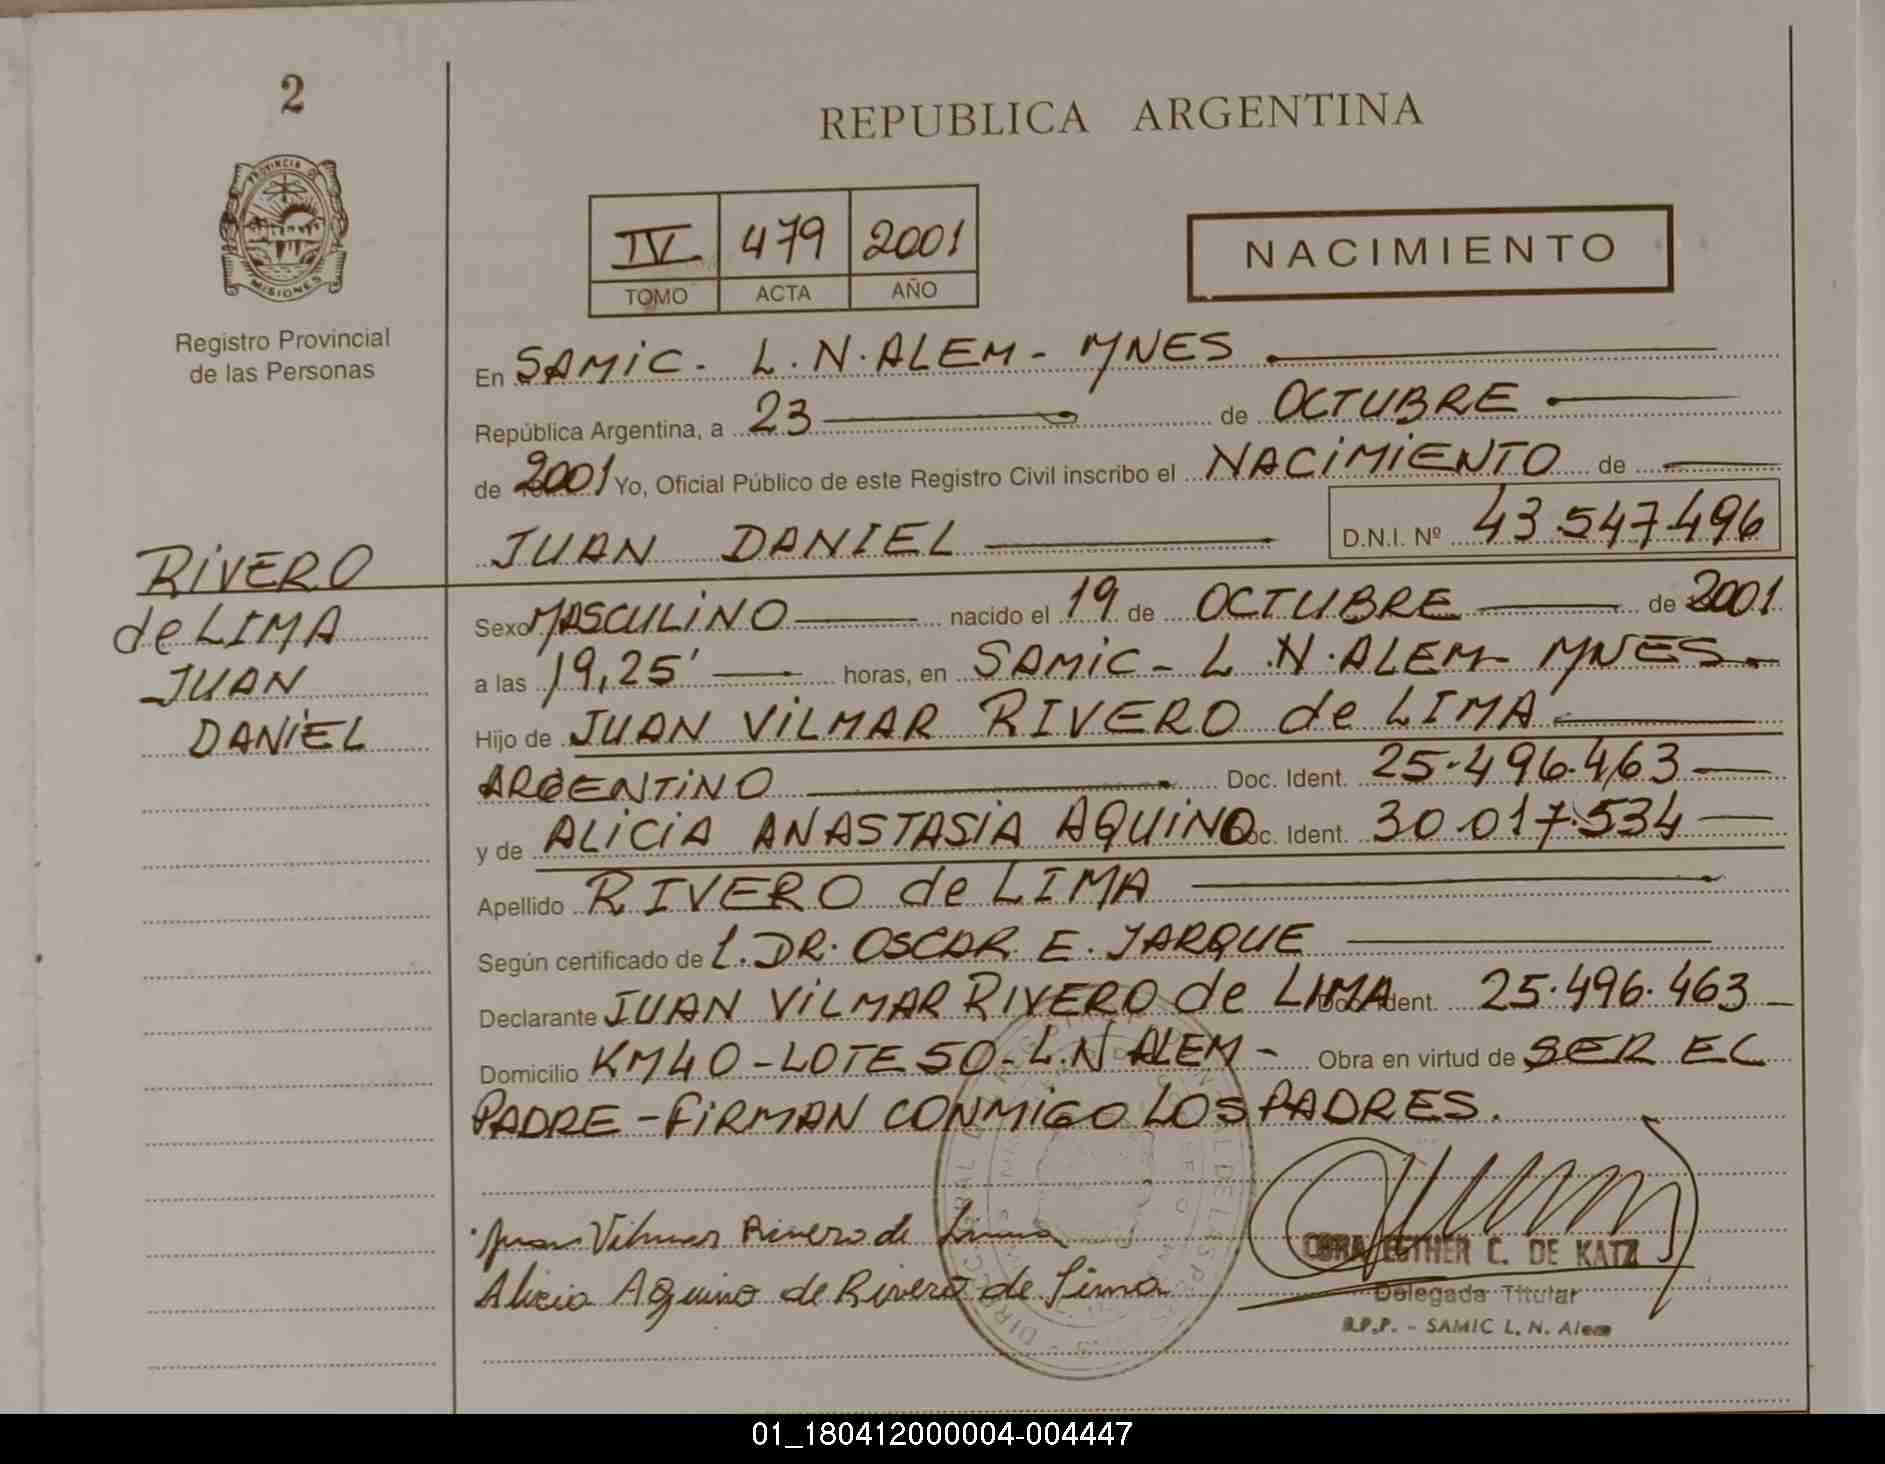 2
REPUBLICA ARGENTINA
PROVINCIA DE
MISIONES
IV 479 2001
TOMO ACTA AÑO
NACIMIENTO
Registro Provincial
de las Personas
En SAMIC - L. N. ALEM - MNES
República Argentina, a 23 de OCTUBRE
de 2001 Yo, Oficial Público de este Registro Civil inscribo el NACIMIENTO de
JUAN DANIEL D.N.I. Nº 43.547.496
RIVERO
de LIMA
JUAN
DANIEL
Sexo MASCULINO nacido el 19 de OCTUBRE de 2001
a las 19,25' horas, en SAMIC - L. N. ALEM - MNES.
Hijo de JUAN VILMAR RIVERO de LIMA
ARGENTINO Doc. Ident. 25.496.463
y de ALICIA ANASTASIA AQUINO Doc. Ident. 30.017.534
Apellido RIVERO de LIMA
Según certificado de L. DR. OSCAR E. JARQUE
Declarante JUAN VILMAR RIVERO de LIMA Doc. Ident. 25.496.463
Domicilio KM 40 - LOTE 50 - L. N ALEM - Obra en virtud de SER EL
PADRE - FIRMAN CONMIGO LOS PADRES.
Juan Vilmar Rivero de Lima
Alicia Aquino de Rivero de Lima
ESTHER C. DE KATZ
Delegada Titular
R.P.P. - SAMIC L. N. Alem
01_180412000004-004447